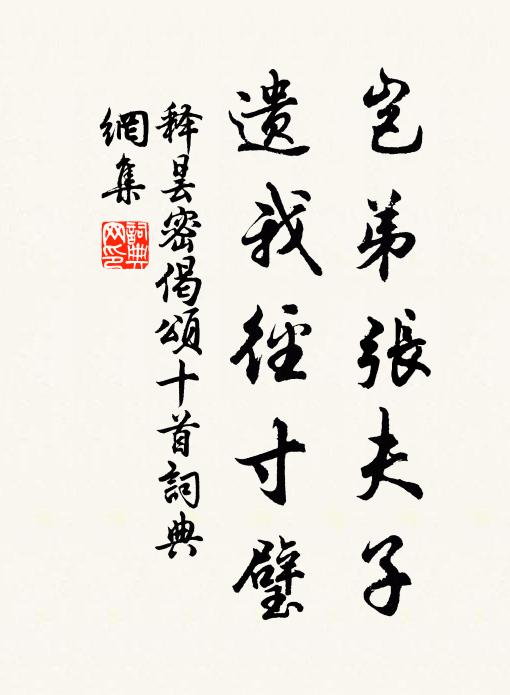 岂弟張夫子
遺我徑寸璧
释曇密偈頌十首詞典
網集
詞典
网印